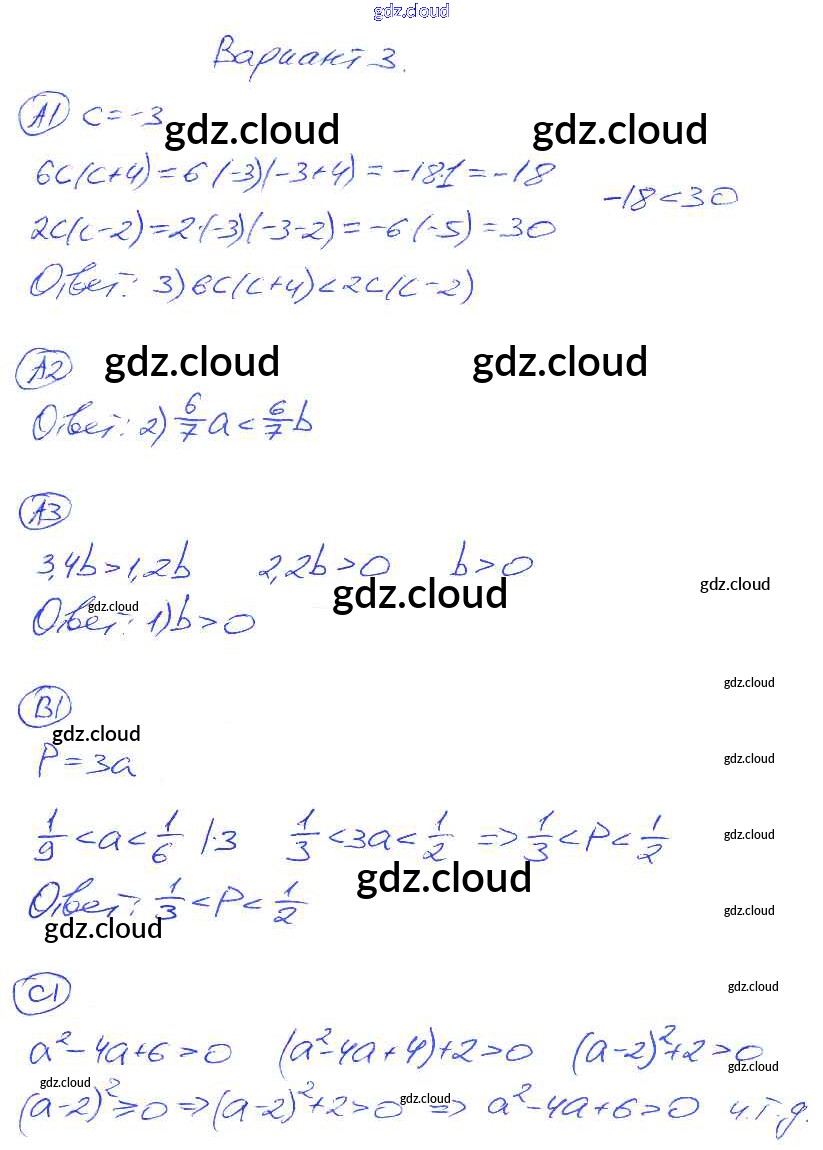 gdz.cloud
Вариант 3.
А1 c = -3
gdz.cloud gdz.cloud
6c(c+4) = 6·(-3)(-3+4) = -18·1 = -18
-18 < 30
2c(c-2) = 2·(-3)(-3-2) = -6·(-5) = 30
Ответ: 3) 6c(c+4) < 2c(c-2)
А2 gdz.cloud gdz.cloud
Ответ: 2) 6/7 a < 6/7 b
А3
3,4b > 1,2b 2,2b > 0 b > 0
gdz.cloud gdz.cloud
gdz.cloud
Ответ: 1) b > 0
gdz.cloud
В1
gdz.cloud
P = 3a
gdz.cloud
1/9 < a < 1/6 |·3 1/3 < 3a < 1/2 => 1/3 < P < 1/2
gdz.cloud
gdz.cloud
Ответ: 1/3 < P < 1/2
gdz.cloud
gdz.cloud
С1
gdz.cloud
a² - 4a + 6 > 0 (a² - 4a + 4) + 2 > 0 (a-2)² + 2 > 0
gdz.cloud
gdz.cloud
(a-2)² ≥ 0 => (a-2)² + 2 > 0 => a² - 4a + 6 > 0 ч.т.д.
gdz.cloud